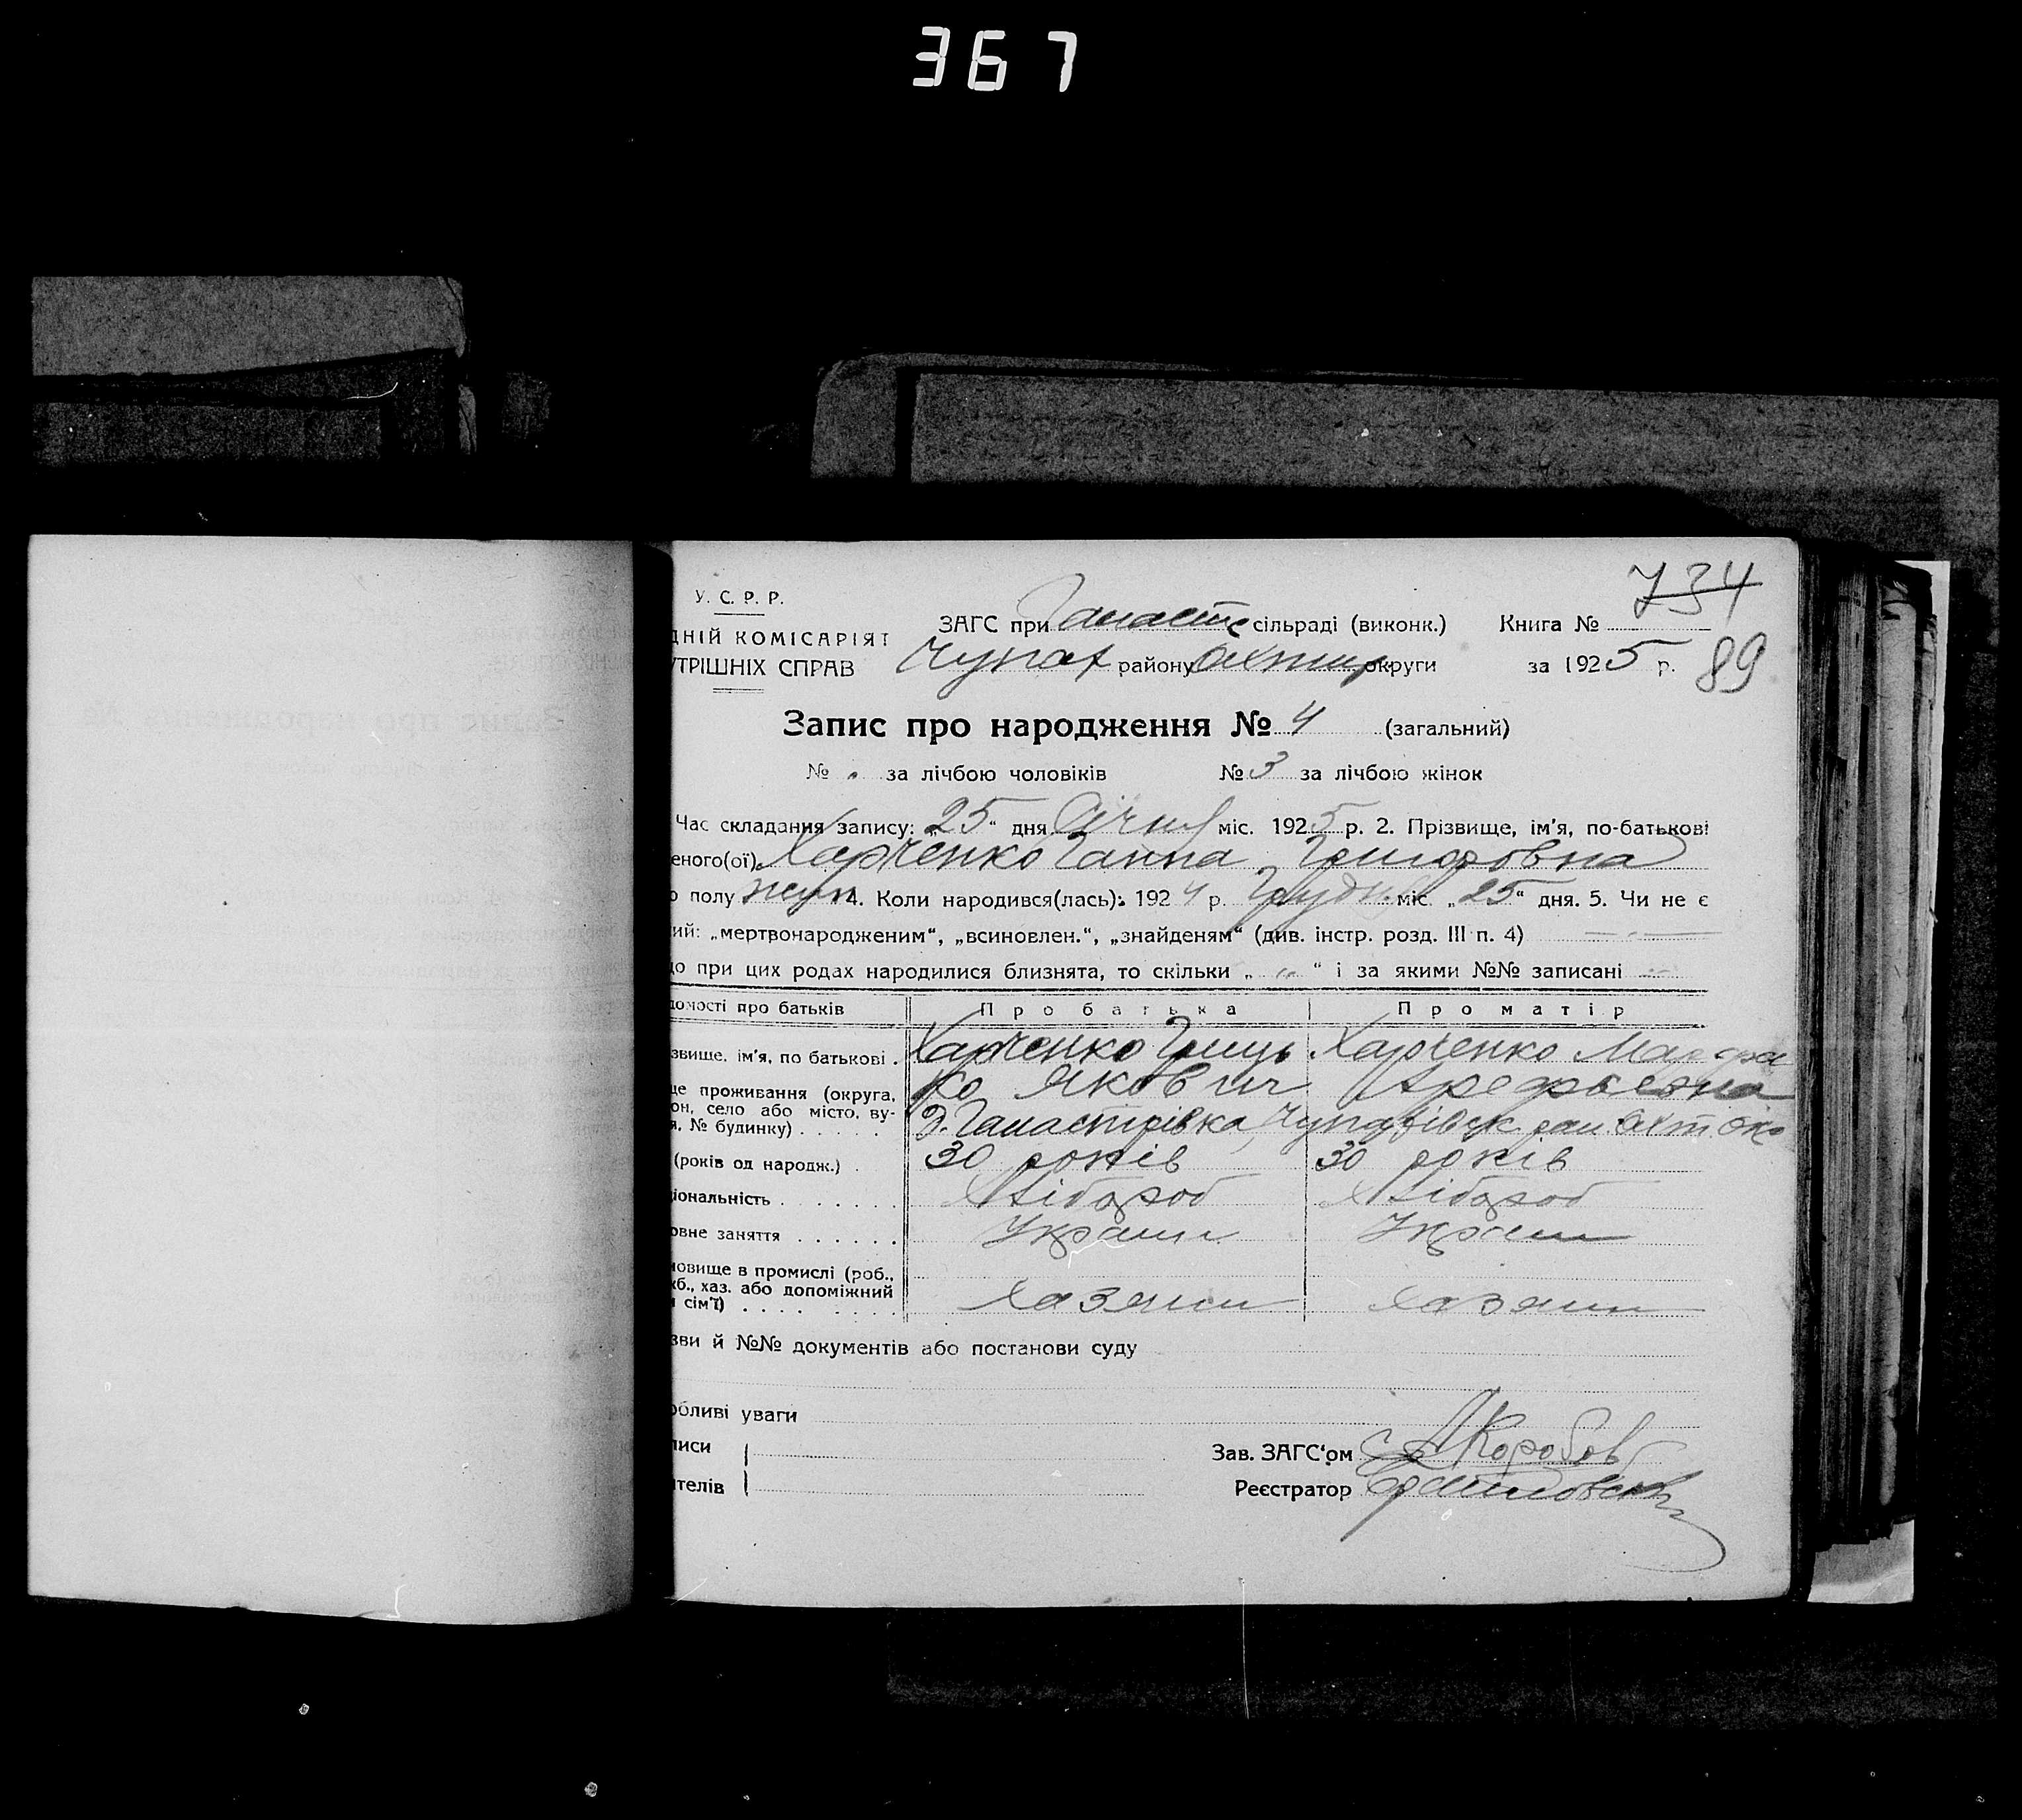 367
734
У. С. Р. Р.
ДНІЙ КОМІСАРІЯТ
УТРІШНІХ СПРАВ
ЗАГС при сільраді (виконк.) Книга №
Чупах району Охтир округи за 1925 р. 89
Запис про народження № 4 (загальний)
№ за лічбою чоловіків № 3 за лічбою жінок
Час складання запису: „25“ дня Січня міс. 1925 р. 2. Прізвище, ім'я, по-батькові
еного(ої) Харченко Ганна Григоровна
о полу жін 4. Коли народився(лась): 1924 р. Грудн. міс. „25“ дня. 5. Чи не є
ий: „мертвонародженим“, „всиновлен.“, „знайденям“ (див. інстр. розд. III п. 4)
що при цих родах народилися близнята, то скільки „ “ і за якими №№ записані
домості про батьків Про батька Про матір
звище, ім'я, по батькові . Харченко Гриць Харченко
ко Якович
це проживання (округа,
он, село або місто, ву-
я, № будинку) . . . . .
(років од народж.) . 30 років 30 років
ціональність . . . . . . . Хлібороб Хлібороб
овне заняття . . . . . . Україн Україн
новище в промислі (роб.,
жб., хаз. або допоміжний
и сім'ї) . . . . . . . . Хазяин Хазяин
зви й №№ документів або постанови суду
обливі уваги
писи
ителів
Зав. ЗАГС'ом Коробов
Реєстратор